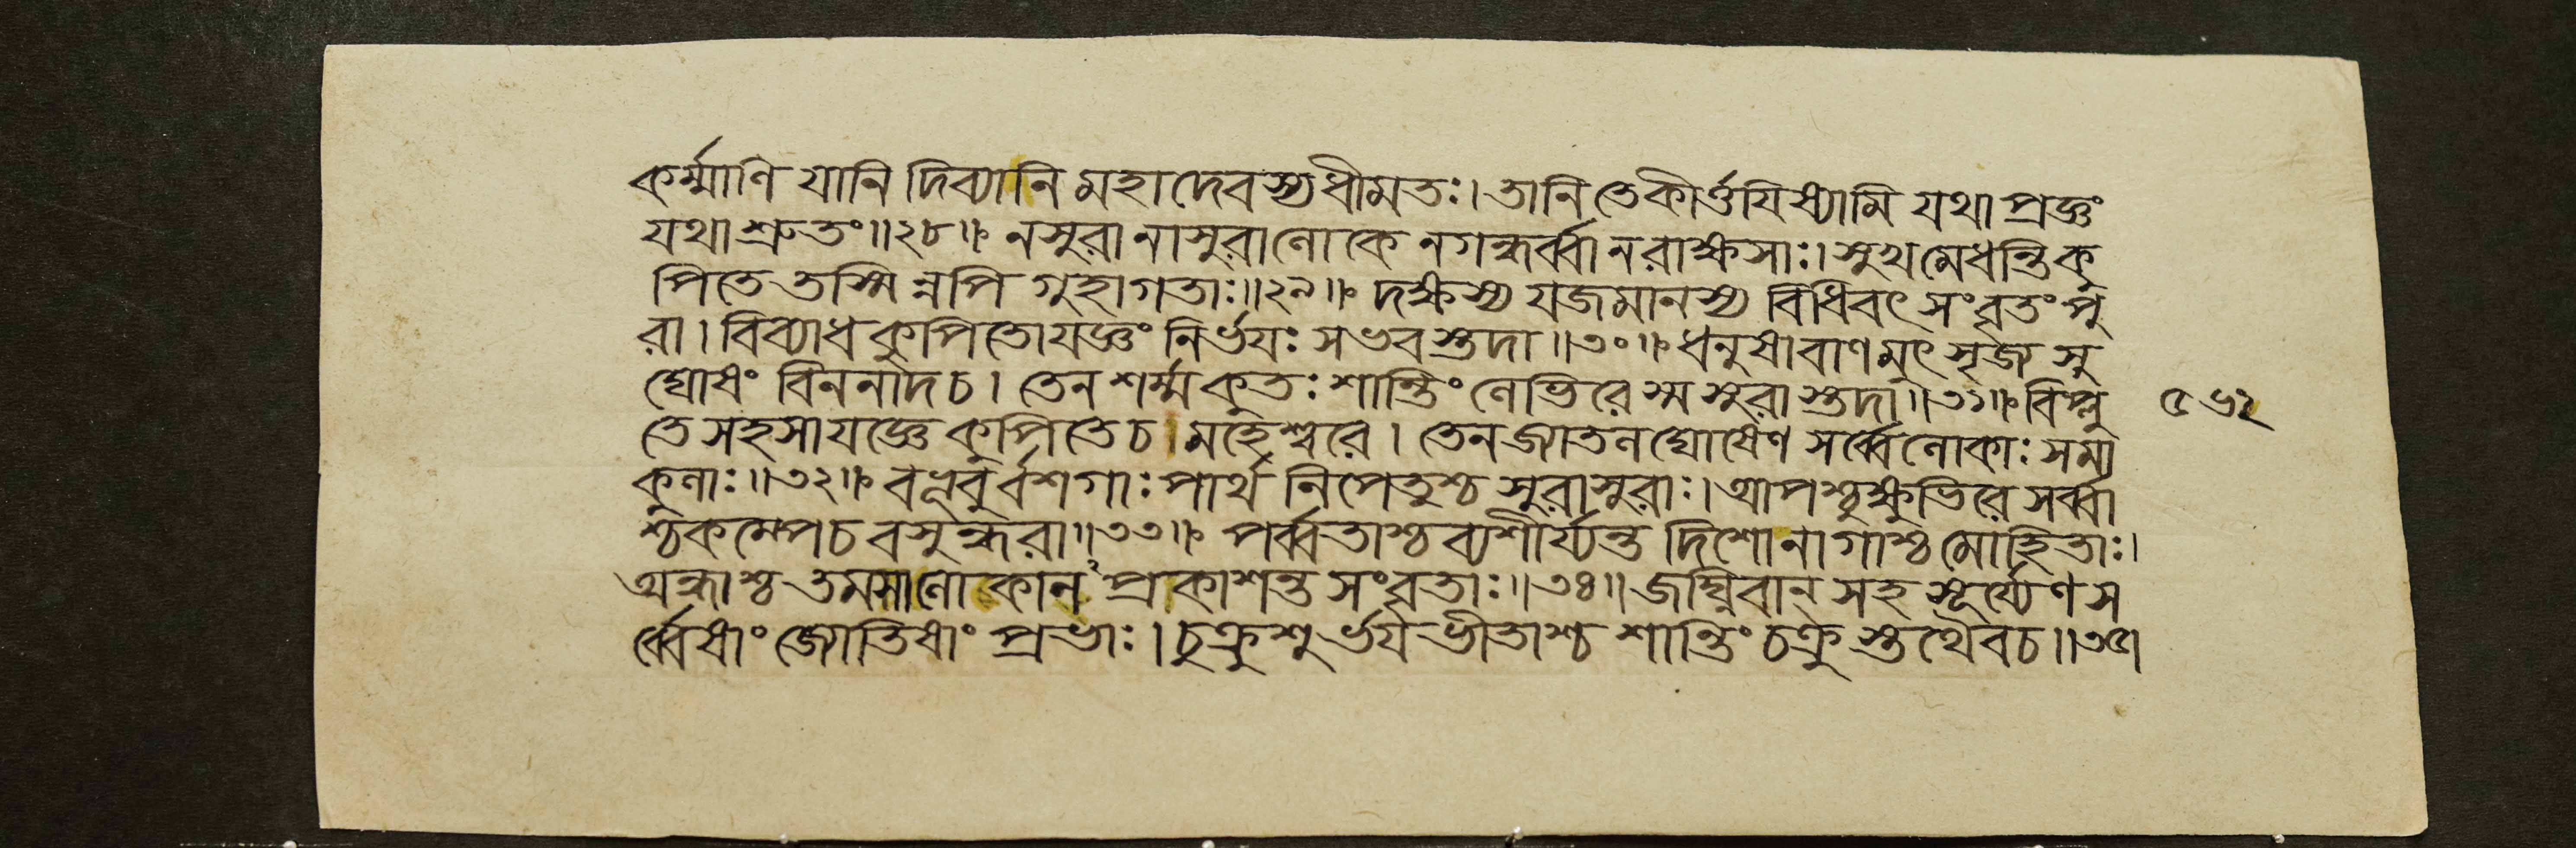 কর্ম্মাণি যানি দিব্যানি মহাদেবস্য ধীমতঃ। তানি তে কীর্ত্তযিষ্যামি যথাপ্রজ্ঞং
যথাশ্রুতং॥২৮॥ নসুরানাসুরাণোকে নগন্ধর্ব্বানরাক্ষসাঃ। সুখমেধন্তিকু
পিতে তস্মিন্নপি গুহাগতাঃ॥২৯॥ দক্ষস্য যজমানস্য বিধিবৎ সংবৃতং পু
রা। বিব্যাধ কুপিতো যজ্ঞং নির্ভযঃ সভবস্তদা॥৩০॥ ধনুষাবাণমুৎসৃজ্য সু
ঘোষং বিননাদচ। তেন শর্ম্মকুতঃ শান্তিং ণেভিরেস্মসুরাস্তদা॥৩১॥ বিপ্লু
তে সহসা যজ্ঞে কুপিতে চ মহেশ্বরে। তেন জ্যাতনঘোষেণ সর্ব্বেণোকাঃ সমা
কুণাঃ॥৩২॥ বভূবুর্বশগাঃ পার্থ নিপেতুশ্চ সুরাসুরাঃ। আপশ্চুক্ষুভিরে সর্ব্বা
শ্চকম্পেচ বসুন্ধরা॥৩৩॥ পর্ব্বতাশ্চ ব্যশীর্য্যন্ত দিশোনাগাশ্চ মোহিতাঃ।
অন্ধাশ্চ তমসাণোকান প্রাকাশন্ত সংবৃতাঃ॥৩৪॥ জঘ্নিবান্ সহ সূর্য্যেণ স
র্ব্বেষাং জ্যোতিষাং প্রভাঃ। চুক্রুশুর্ভযভীতাশ্চ শান্তিং চক্রুস্তথৈবচ॥৩৫॥
৫৬২